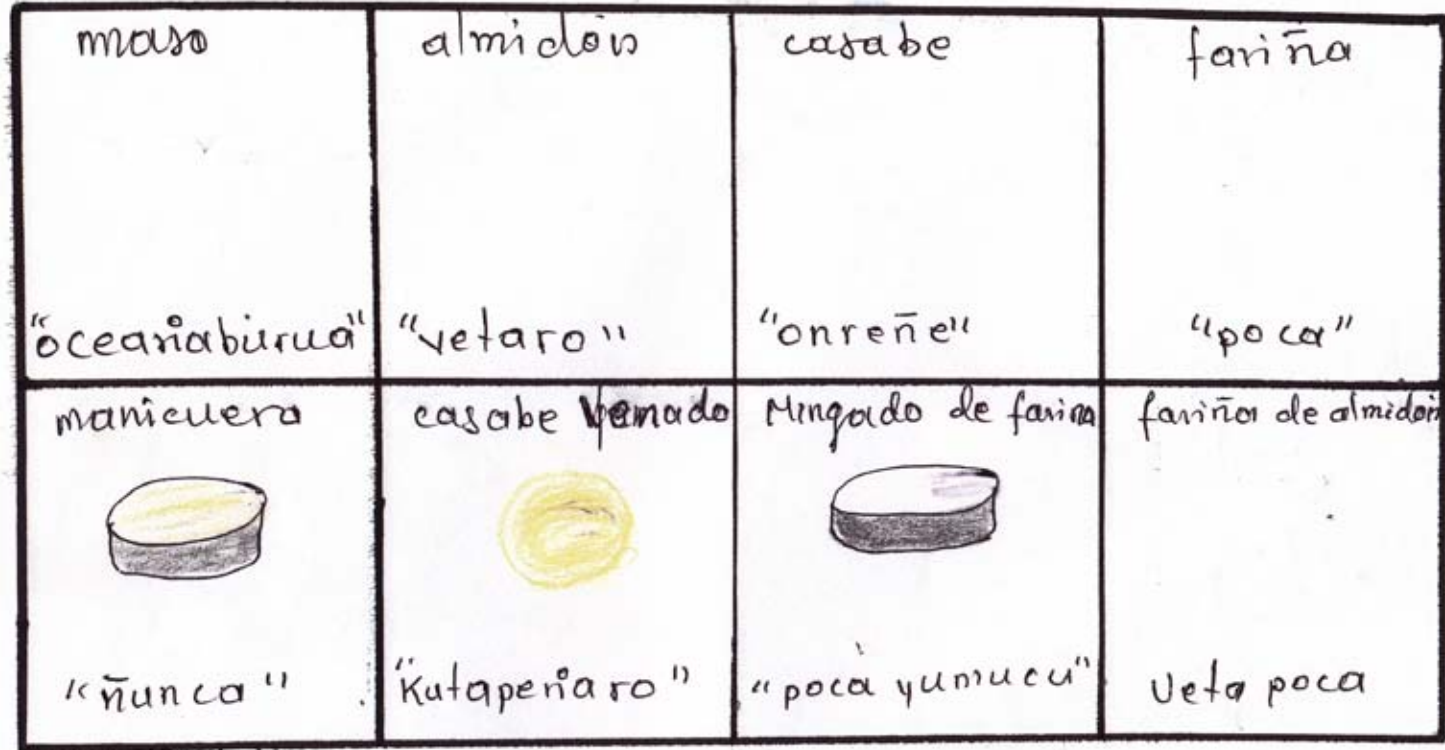 maso
almidón
casabe
fariña
"oceañaburua"
"vetaro"
"onreñe"
"poca"
manicuera
casabe
Mingado de farina
fariña de almidón
"ñunca"
"Kutapeñaro"
"poca yumucu"
Veta poca